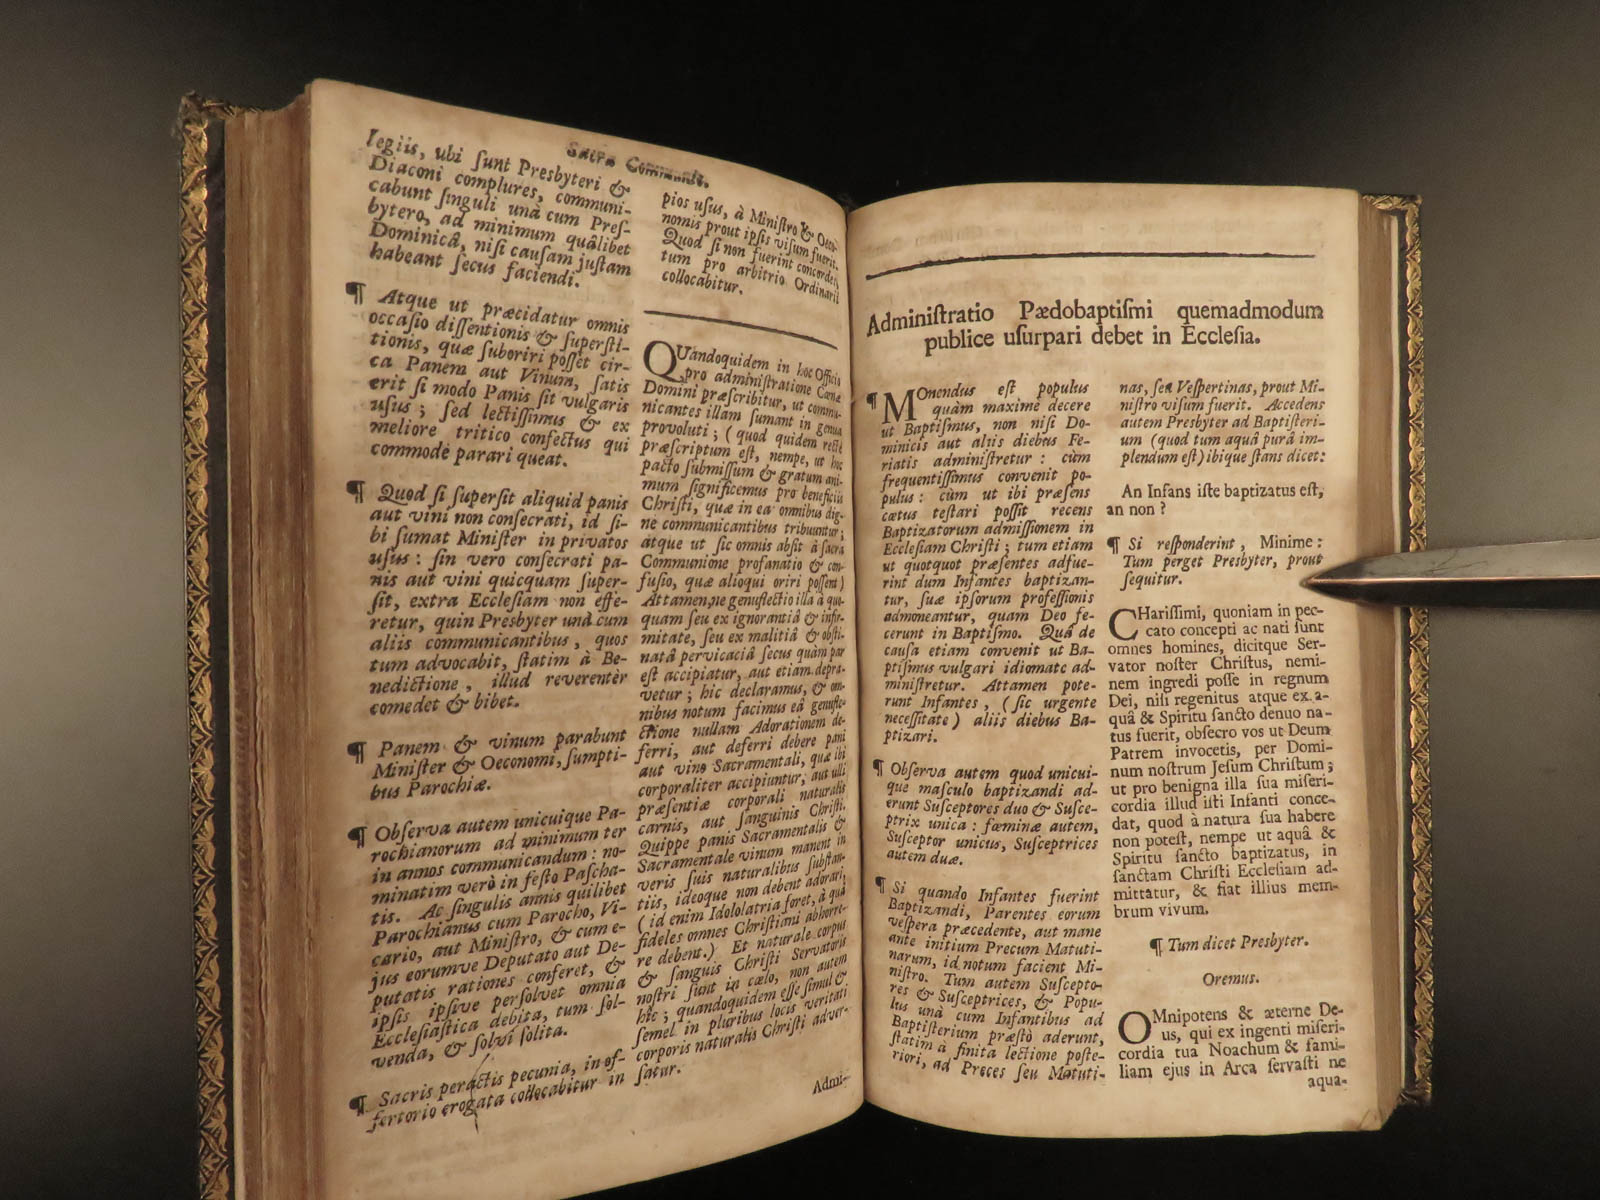 Sacra Communio.
legiis, ubi ſunt Presbyteri &
Diaconi complures, communi-
cabunt ſinguli unà cum Preſ-
bytero, ad minimum quâlibet
Dominicâ, niſi cauſam juſtam
habeant ſecus faciendi.
¶ Atque ut præcidatur omnis
occaſio diſſentionis & ſuperſti-
tionis, quæ ſuboriri poſſet cir-
ca Panem aut Vinum, ſatis
erit ſi modo Panis ſit vulgaris
uſus; ſed lectiſſimus & ex
meliore tritico confectus qui
commodè parari queat.
¶ Quod ſi ſuperſit aliquid panis
aut vini non conſecrati, id ſi-
bi ſumat Miniſter in privatos
uſus: ſin vero conſecrati pa-
nis aut vini quicquam ſuper-
ſit, extra Eccleſiam non effe-
retur, quin Presbyter unà cum
aliis communicantibus, quos
tum advocabit, ſtatim à Be-
nedictione, illud reverentèr
comedet & bibet.
¶ Panem & vinum parabunt
Miniſter & Oeconomi, ſumpti-
bus Parochiæ.
¶ Obſerva autem unicuique Pa-
rochianorum ad minimum ter
in annos communicandum: no-
minatim verò in feſto Paſcha-
tis. Ac ſingulis annis quilibet
Parochianus cum Parocho, Vi-
cario, aut Miniſtro, & cum e-
jus eorumve Deputato aut De-
putatis rationes conferet, &
ipſis ipſive perſolvet omnia
Eccleſiaſtica debita, tum ſol-
venda, & ſolvi ſolita.
¶ Sacris peractis pecunia, in of-
fertorio erogata collocabitur in
pios uſus, à Miniſtro & Oeco-
nomis prout ipſis viſum fuerit.
Quod ſi non fuerint concordes,
tum pro arbitrio Ordinarii
collocabitur.
QUandoquidem in hoc Officio
pro adminiſtratione Cœnæ
Domini præſcribitur, ut commu-
nicantes illam ſumant in genua
provoluti; (quod quidem rectè
præſcriptum eſt, nempe, ut hoc
pacto ſubmiſſum & gratum ani-
mum ſignificemus pro beneficiis
Chriſti, quæ in ea omnibus dig-
ne communicantibus tribuuntur;
atque ut ſic omnis abſit à ſacra
Communione profanatio & con-
fuſio, quæ alioqui oriri poſſent)
Attamen, ne genuflectio illa à quo-
quam ſeu ex ignorantiâ & infir-
mitate, ſeu ex malitiâ & obſti-
natâ pervicaciâ ſecus quàm par
eſt accipiatur, aut etiam depra-
vetur; hic declaramus, & om-
nibus notum facimus eâ genufle-
ctione nullam Adorationem de-
ferri, aut deferri debere pani
aut vino Sacramentali, quæ ibi
corporaliter accipiuntur, aut ulli
præſentiæ corporali naturalis
carnis, aut ſanguinis Chriſti.
Quippe panis Sacramentalis &
Sacramentale vinum manent in
veris ſuis naturalibus ſubſtan-
tiis, ideoque non debent adorari,
(id enim Idololatria foret, à quâ
fideles omnes Chriſtiani abhorre-
re debent.) Et naturale corpus
& ſanguis Chriſti Servatoris
noſtri ſunt in cælo, non autem
hic; quandoquidem eſſe ſimul &
ſemel in pluribus locis veritati
corporis naturalis Chriſti adver-
ſatur.
Admi-
Adminiſtratio Pædobaptiſmi quemadmodum
publice uſurpari debet in Eccleſia.
¶ MOnendus eſt populus
quàm maxime decere
ut Baptiſmus, non niſi Do-
minicis aut aliis diebus Fe-
riatis adminiſtretur: cùm
frequentiſſimus convenit po-
pulus: cùm ut ibi præſens
cœtus teſtari poſſit recens
Baptizatorum admiſſionem in
Eccleſiam Chriſti; tum etiam
ut quotquot præſentes adfue-
rint dum Infantes baptizan-
tur, ſuæ ipſorum profeſſionis
admoneantur, quam Deo fe-
cerunt in Baptiſmo. Quâ de
cauſa etiam convenit ut Ba-
ptiſmus vulgari idiomate ad-
miniſtretur. Attamen pote-
runt Infantes, (ſic urgente
neceſſitate) aliis diebus Ba-
ptizari.
¶ Obſerva autem quod unicui-
que maſculo baptizandi ad-
erunt Suſceptores duo & Suſce-
ptrix unica: fœminæ autem,
Suſceptor unicus, Suſceptrices
autem duæ.
¶ Si quando Infantes fuerint
Baptizandi, Parentes eorum
veſpera præcedente, aut mane
ante initium Precum Matuti-
narum, id notum facient Mi-
niſtro. Tum autem Suſcepto-
res & Suſceptrices, & Popu-
lus unà cum Infantibus ad
Baptiſterium præſtò aderunt,
ſtatim à finita lectione poſte-
riori, ad Preces ſeu Matuti-
nas, ſeu Veſpertinas, prout Mi-
niſtro viſum fuerit. Accedens
autem Presbyter ad Baptiſteri-
um (quod tum aquâ purâ im-
plendum eſt) ibique ſtans dicet:
An Infans iſte baptizatus eſt,
an non?
¶ Si reſponderint, Minime:
Tum perget Presbyter, prout
ſequitur.
CHariſſimi, quoniam in pec-
cato concepti ac nati ſunt
omnes homines, dicitque Ser-
vator noſter Chriſtus, nemi-
nem ingredi poſſe in regnum
Dei, niſi regenitus atque ex a-
quâ & Spiritu ſancto denuo na-
tus fuerit, obſecro vos ut Deum
Patrem invocetis, per Domi-
num noſtrum Jeſum Chriſtum;
ut pro benigna illa ſua miſeri-
cordia illud iſti Infanti conce-
dat, quod à natura ſua habere
non poteſt, nempe ut aquâ &
Spiritu ſancto baptizatus, in
ſanctam Chriſti Eccleſiam ad-
mittatur, & fiat illius mem-
brum vivum.
¶ Tum dicet Presbyter.
Oremus.
OMnipotens & æterne De-
us, qui ex ingenti miſeri-
cordia tua Noachum & fami-
liam ejus in Arca ſervaſti ne
aqua-